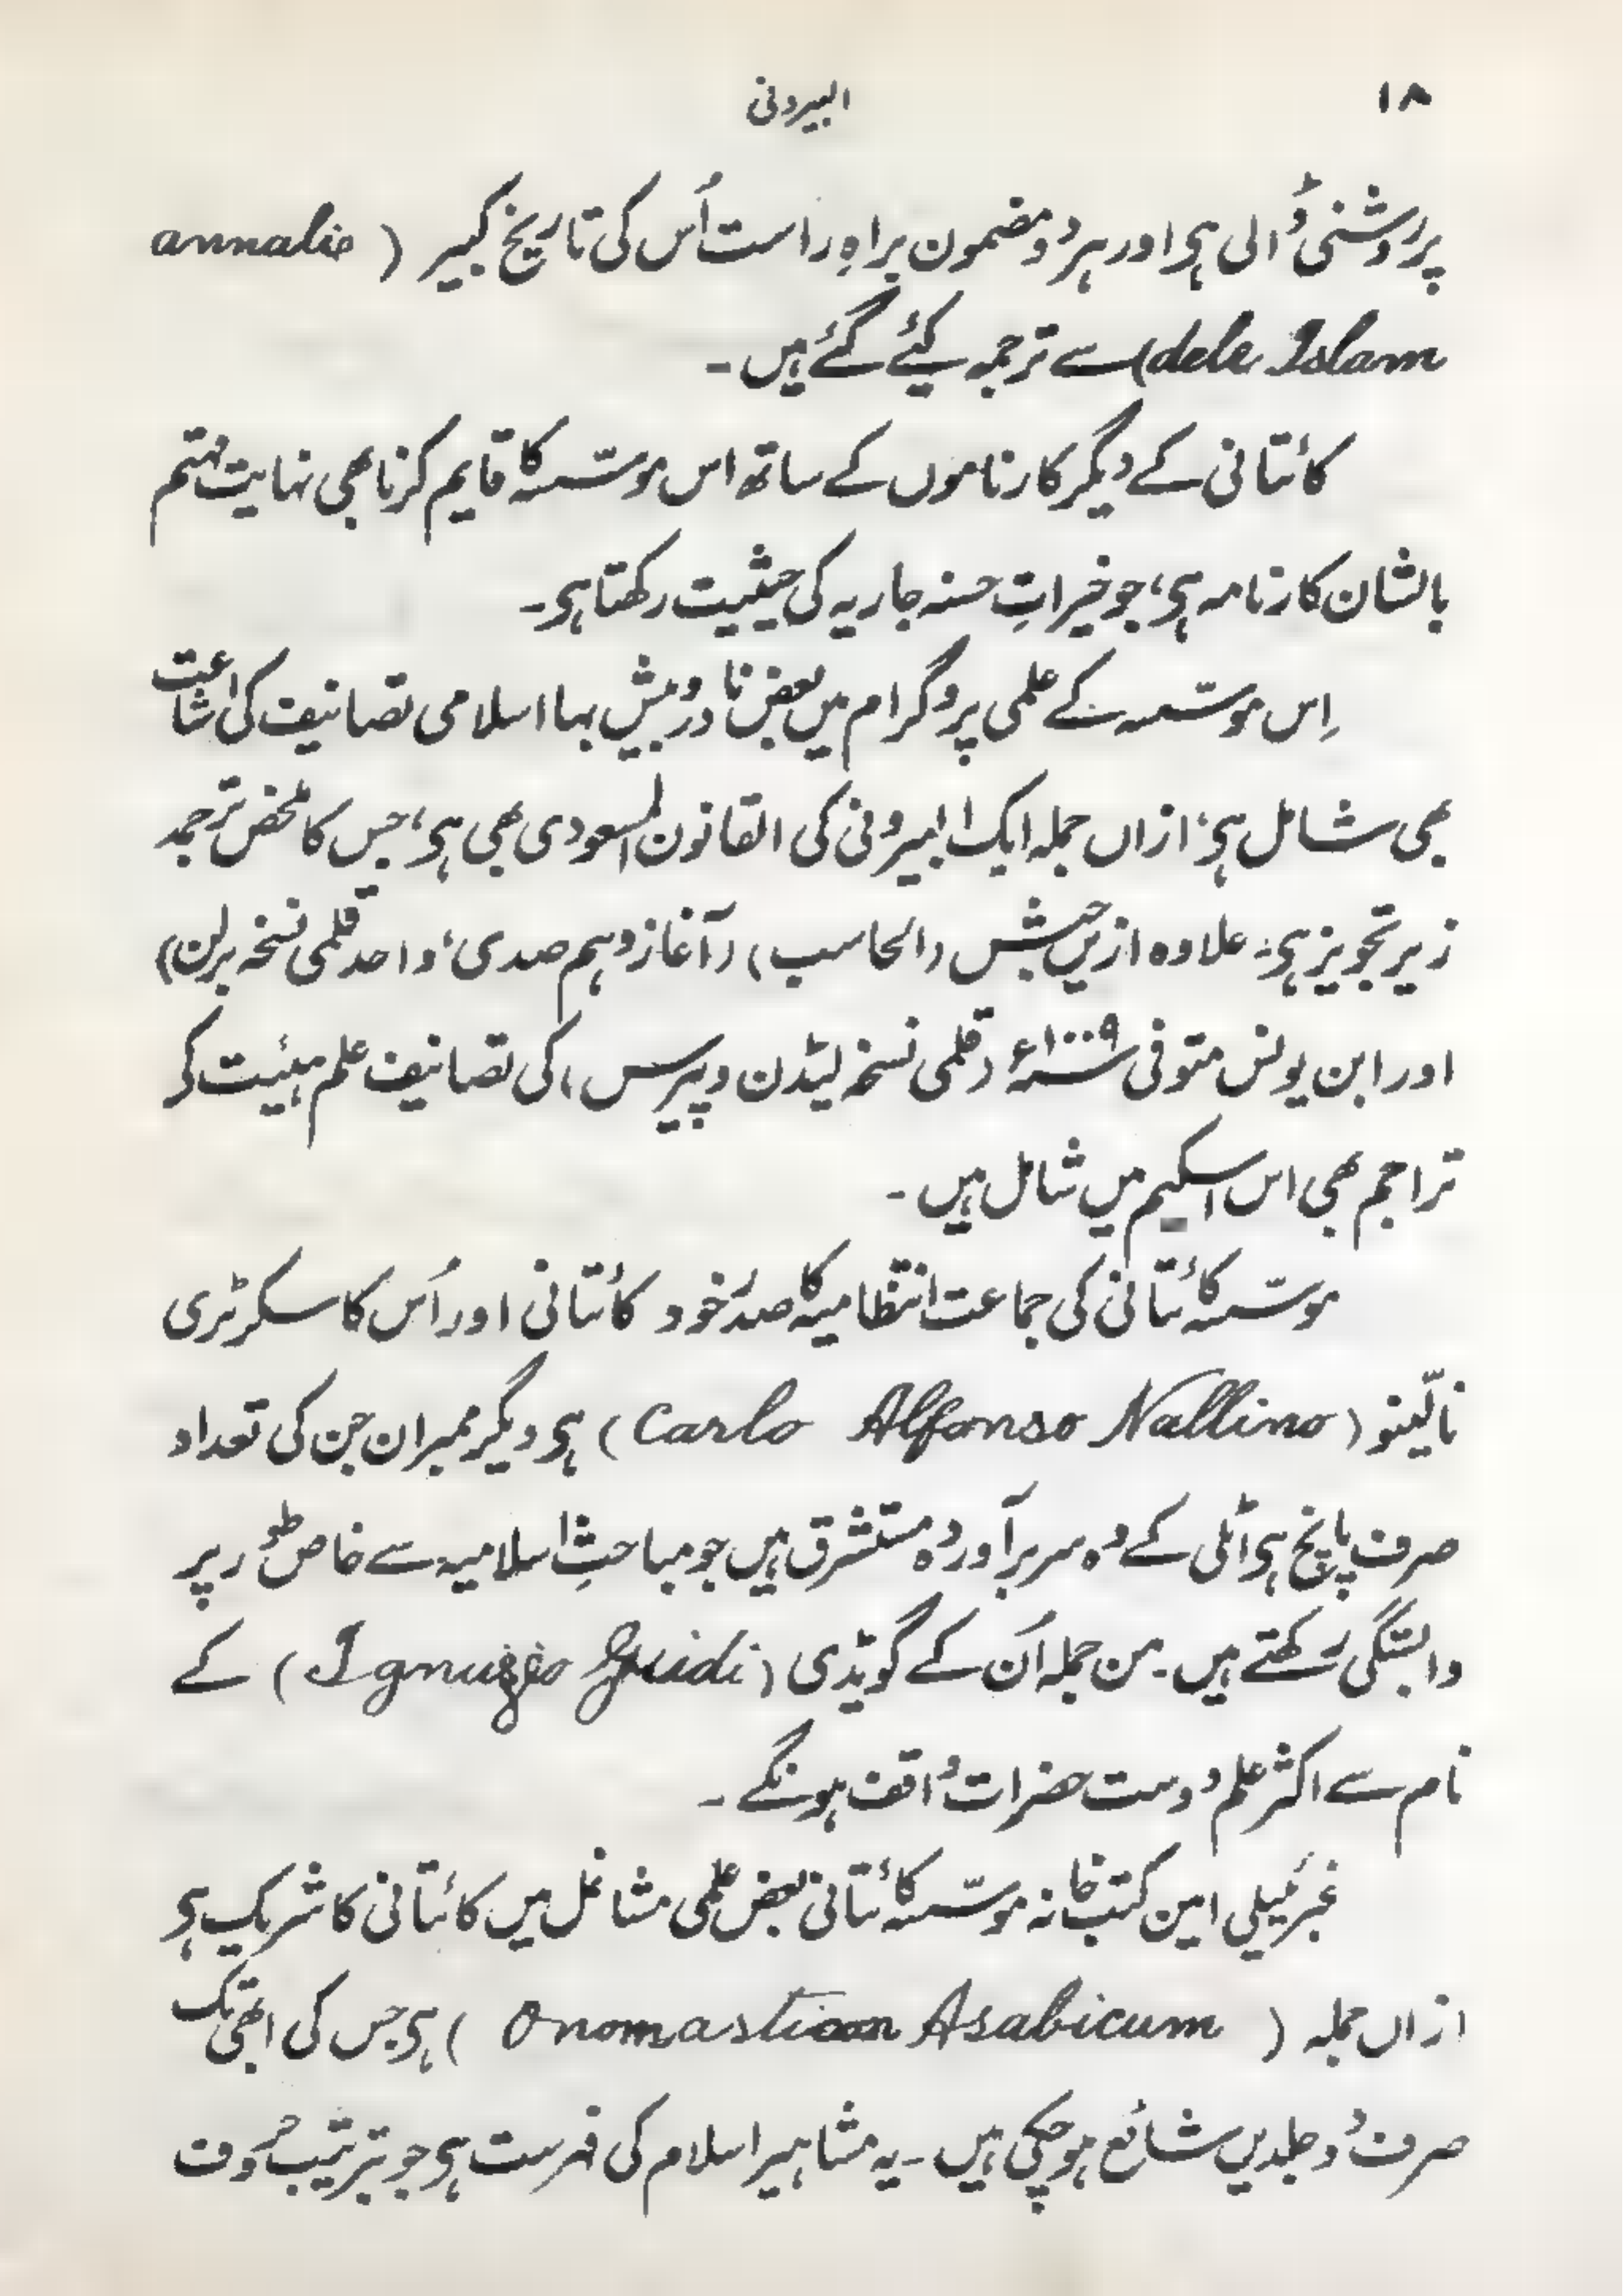 ۱۸ البیرونی
پر روشنی ڈالی ہی اور ہر دو مضمون براہِ راست اُس کی تاریخ کبیر ( annalie
dele Islam) سے ترجمہ کیئے گئے ہیں ۔
کائتانی کے دیگر کارناموں کے ساتھ اس موسّسہ کا قایم کرنا بھی نہایت مہتم
بالشان کارنامہ ہی، جو خیراتِ حسنہ جاریہ کی حیثیت رکھتا ہی۔
اِس موسّسہ کے علمی پروگرام میں بعض نادر و بیش بہا اسلامی تصانیف کی اشاعت
بھی شامل ہی، ازاں جملہ ایک البیرونی کی القانون المسعودی بھی ہی، جس کا محض ترجمہ
زیر تجویز ہی۔ علاوہ ازیں حبش (الحاسب) (آغاز دہم صدی، واحد قلمی نسخہ برلن)
اور ابن یونس متوفی ۱۰۰۹ء (قلمی نسخہ لیڈن و پیرس) کی تصانیف علم ہیئت کے
تراجم بھی اس اسکیم میں شامل ہیں ۔
موسّسہ کائتانی کی جماعت انتظامیہ کا صدر خود کائتانی اور اُس کا سکرٹری
نالّینو (Carlo Alfonso Nallino) ہی دیگر ممبران جن کی تعداد
صرف پانچ ہی اٹلی کے وہ سربرآوردہ مستشرق ہیں جو مباحثِ اسلامیہ سے خاص طور پر
وابستگی رکھتے ہیں ۔ من جملہ اُن کے گویڈی (Ignuzzio Guidi) کے
نام سے اکثر علم دوست حضرات واقف ہونگے ۔
غبرئیلی امین کتب خانہ موسّسہ کائتانی بعض علمی مشاغل میں کائتانی کا شریک ہی
ازاں جملہ ( Onomasticon Asabicum ) ہی جس کی ابھی تک
صرف دو جلدیں شائع ہو چکی ہیں ۔ یہ مشاہیر اسلام کی فہرست ہی جو بترتیب حروف